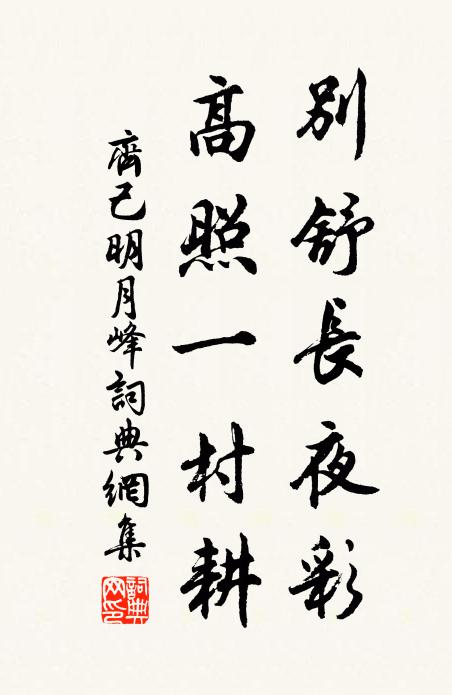 別舒長夜彩
高照一村耕
齊己明月峰詞典網集
詞典網印